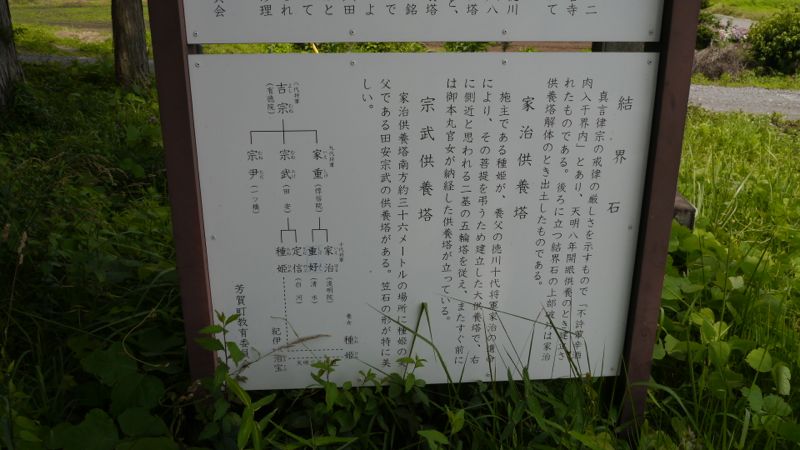 二
寺
て
徳川
八
塔
と、
塔
銘
で
よ
田
と
て
れ
理
員会
結界石
真言律宗の戒律の厳しさを示すもので「不許葷辛酒
肉入于界内」とあり、天明八年開眼供養のとき
れたものである。後ろに立つ結界石の上部は家治
供養塔解体のとき出土したものである。
家治供養塔
施主である種姫が、養父の徳川十代将軍家治の
により、その菩提を弔うため建立した大供養塔で、右
に側近と思われる二基の五輪塔を従え、またすぐ前に
は御本丸官女が納経した供養塔が立っている。
宗武供養塔
家治供養塔南方約三十六メートルの場所に種姫の実
父である田安宗武の供養塔がある。笠石の形が特に美
しい。
八代将軍
吉宗
(有徳院)
九代将軍
家重
(惇信院)
宗武
(田安)
宗尹
(一ツ橋)
十代将軍
家治
(浚明院)
重好
(清水)
定信
(白河)
種姫
養女
種姫
紀伊治宝
芳賀町教育委員